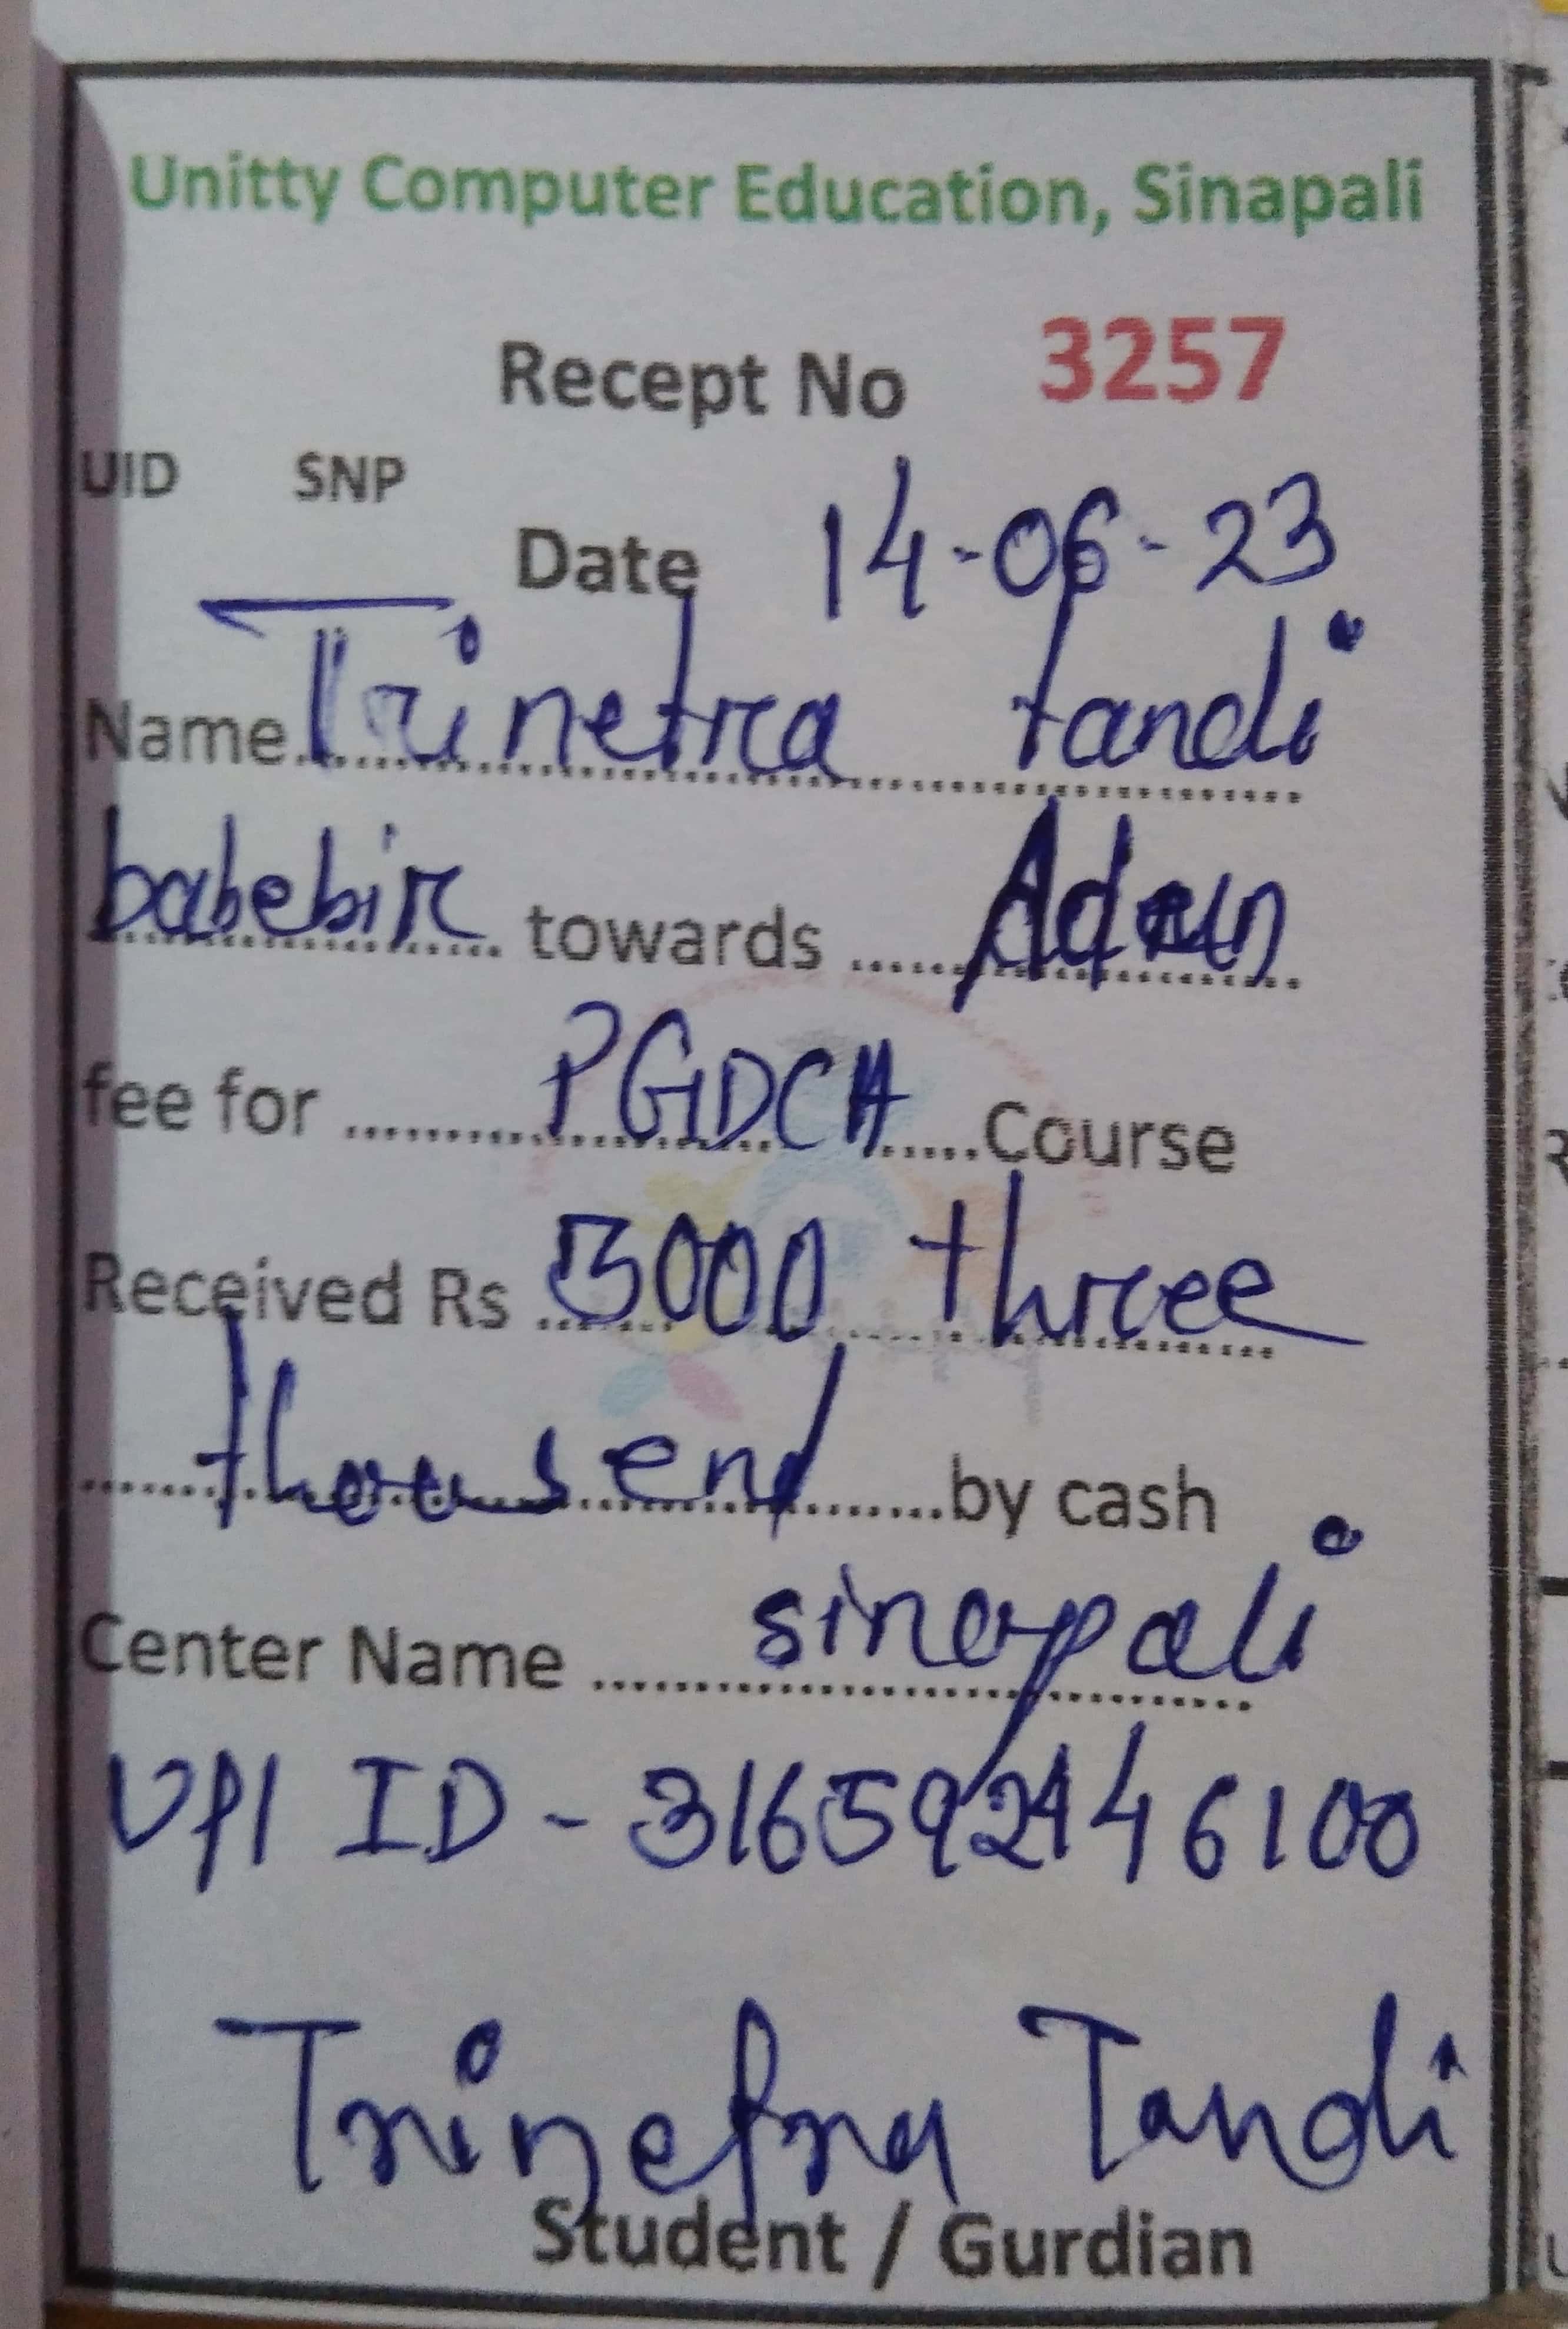 Unitty Computer Education, Sinapali
Recept No 3257
UID SNP
Date 14-06-23
Name Trinetra tandi
babebir towards Adm
fee for PGDCA Course
Received Rs 3000 three
thousend by cash
Center Name sinapali
UPI ID - 316592146100
Trinetra Tandi
Student / Gurdian